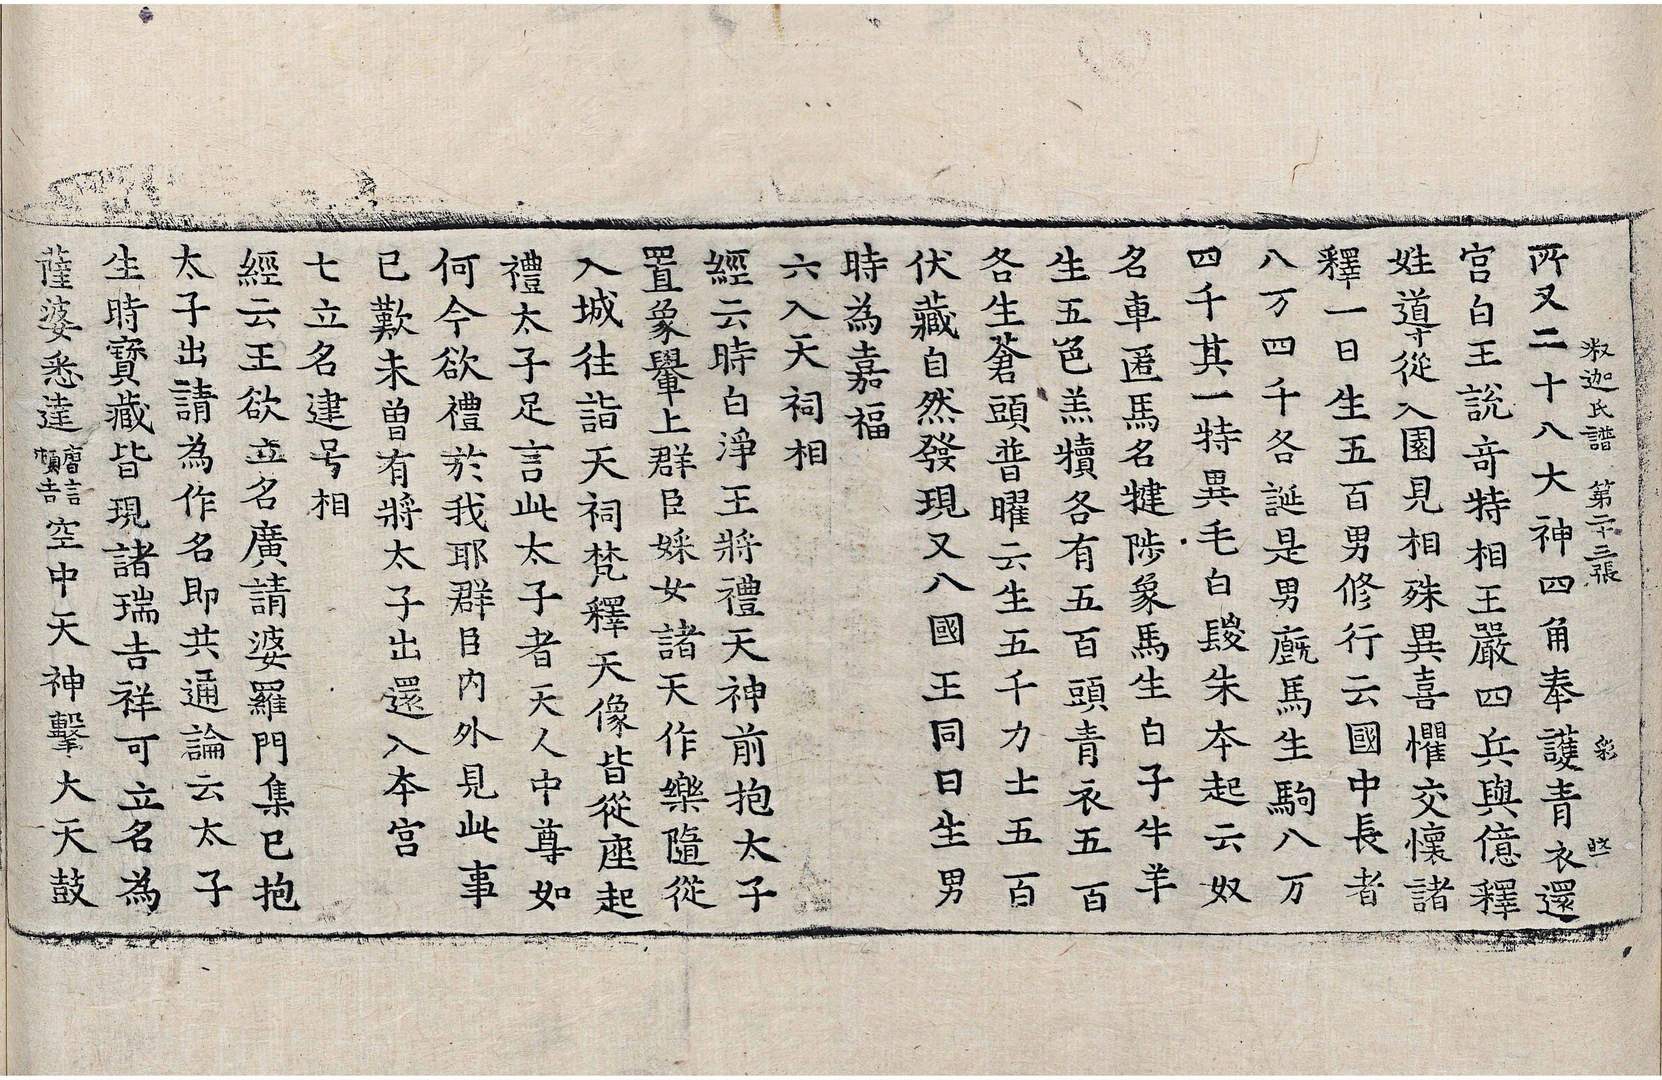 釋迦氏譜 第二十三張
所又二十八大神四角奉護青衣還
宮白王說奇特相王嚴四兵與億釋
姓導從入園見相殊異喜懼交懷諸
釋一日生五百男修行云國中長者
八万四千各誕是男廐馬生駒八万
四千其一特異毛白騣朱本起云奴
名車匿馬名犍陟象馬生白子牛羊
生五色羔犢各有五百頭青衣五百
各生蒼頭普曜云生五千力士五百
伏藏自然發現又八國王同日生男
時為嘉福
六入天祠相
經云時白淨王將禮天神前抱太子
置象轝上群臣婇女諸天作樂隨從
入城往詣天祠梵釋天像皆從座起
禮太子足言此太子者天人中尊如
何今欲禮於我耶群臣內外見此事
已歎未曾有將太子出還入本宮
七立名建号相
經云王欲立名廣請婆羅門集已抱
太子出請為作名即共通論云太子
生時寶藏皆現諸瑞吉祥可立名為
薩婆悉達唐言頓吉空中天神擊大天鼓